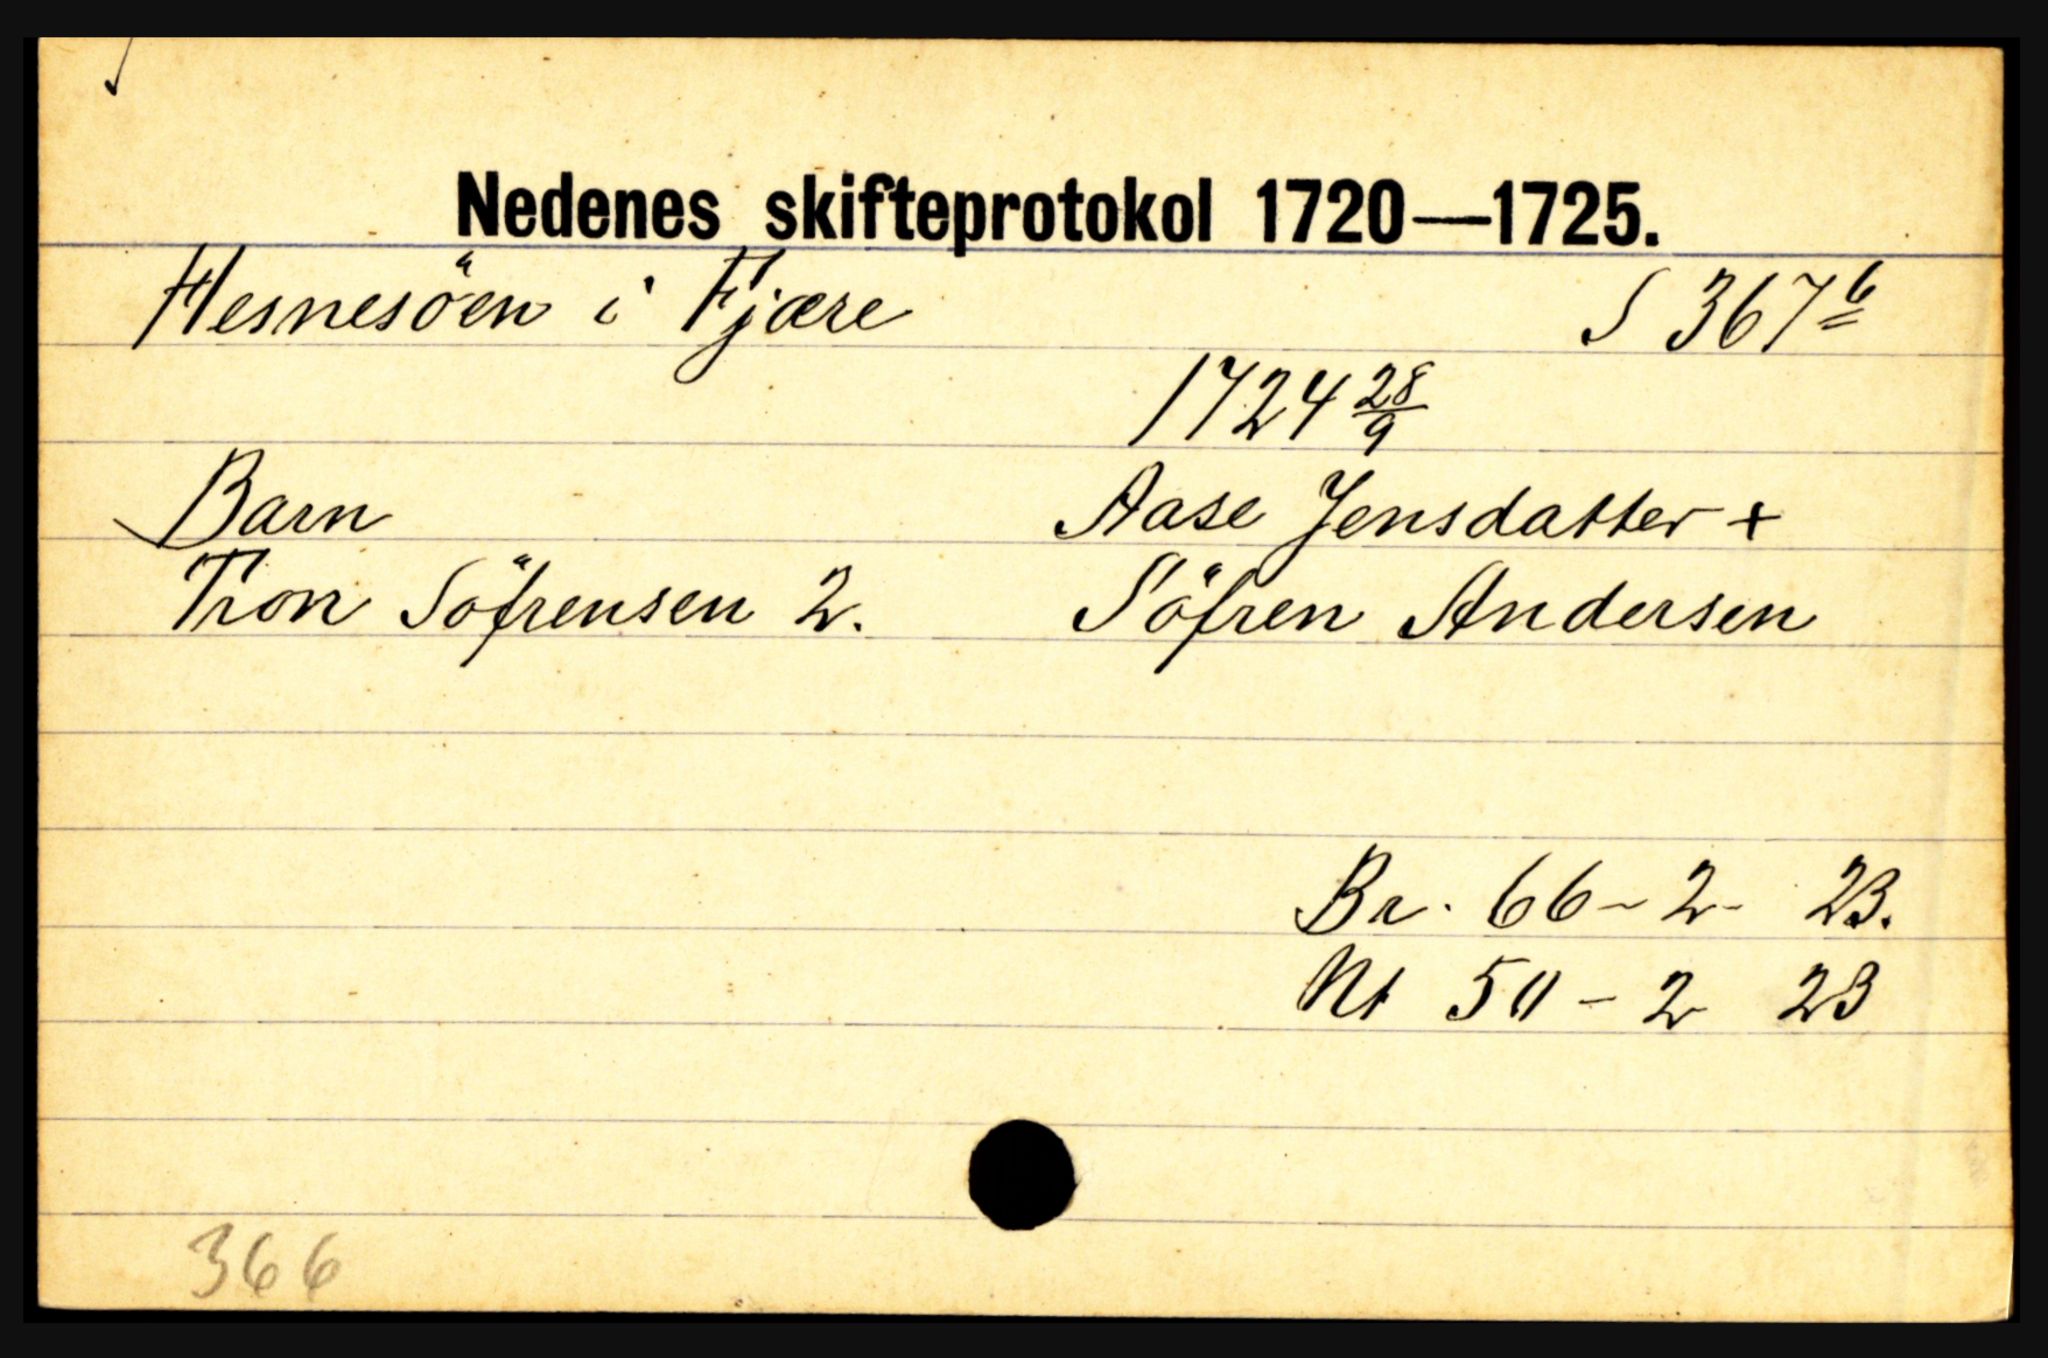 Nedenes skifteprotokol 1720—1725.
Hesnesöen i Fjære S 367 b
1724 28/9
Barn Aase Jensdatter +
Tron Söfrensen 2. Söfren Andersen
Br. 66 - 2 - 23.
Nt 50 - 2 23
366